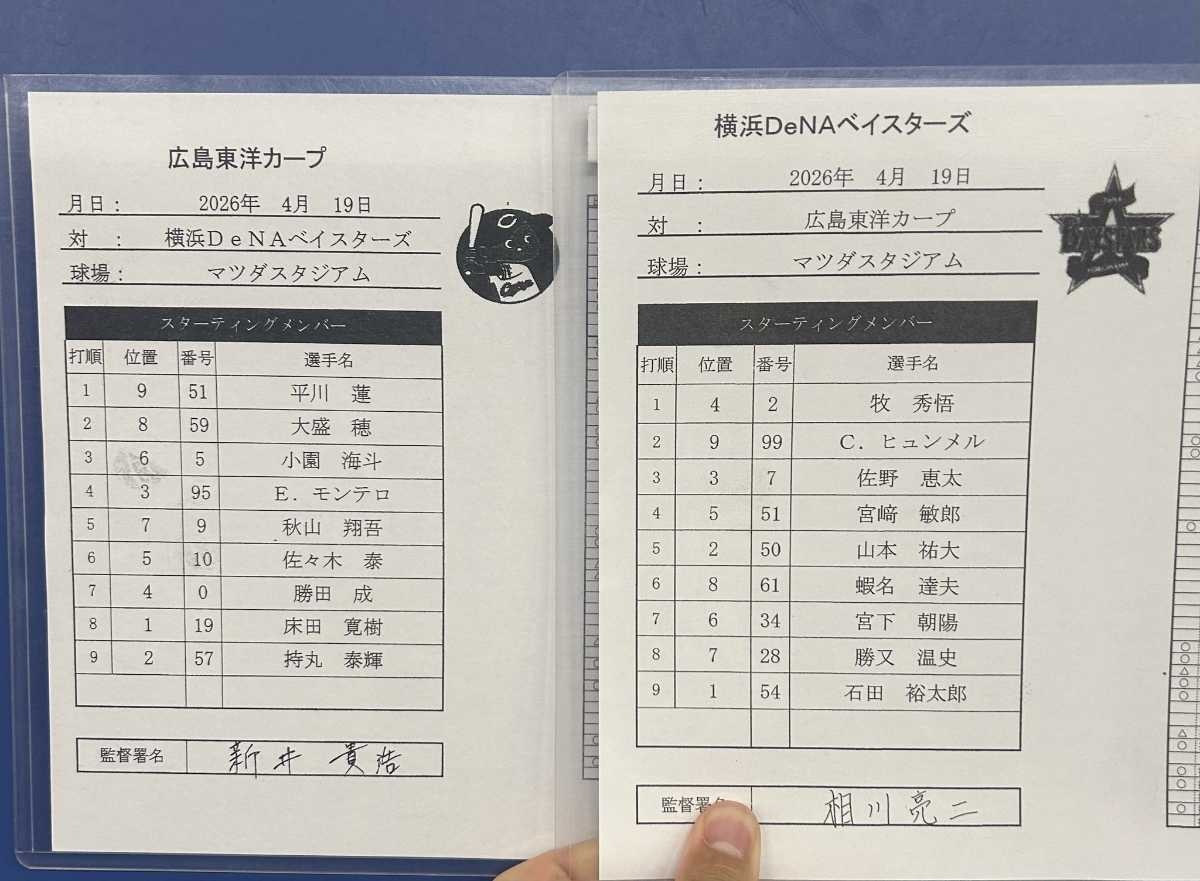 広島東洋カープ
月日： 2026年 4月 19日
対 ： 横浜ＤｅＮＡベイスターズ
球場： マツダスタジアム
スターティングメンバー
打順 位置 番号 選手名
1 9 51 平川 蓮
2 8 59 大盛 穂
3 6 5 小園 海斗
4 3 95 Ｅ．モンテロ
5 7 9 秋山 翔吾
6 5 10 佐々木 泰
7 4 0 勝田 成
8 1 19 床田 寛樹
9 2 57 持丸 泰輝
監督署名 新井 貴浩
横浜DeNAベイスターズ
月日： 2026年 4月 19日
対 ： 広島東洋カープ
球場： マツダスタジアム
BAYSTARS
スターティングメンバー
打順 位置 番号 選手名
1 4 2 牧 秀悟
2 9 99 Ｃ．ヒュンメル
3 3 7 佐野 恵太
4 5 51 宮﨑 敏郎
5 2 50 山本 祐大
6 8 61 蝦名 達夫
7 6 34 宮下 朝陽
8 7 28 勝又 温史
9 1 54 石田 裕太郎
監督署名 相川 亮二